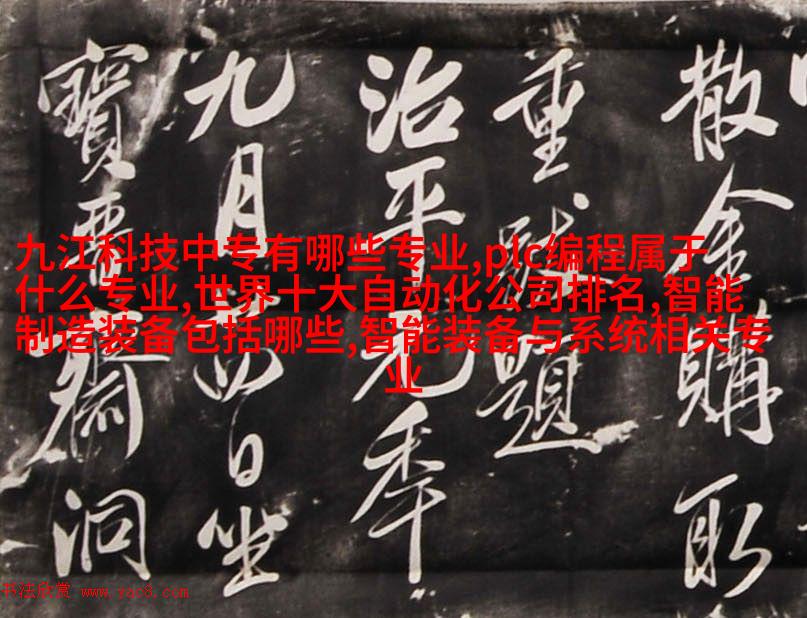 散金購取
重題
治平元年
九月日坐
寶晉齋洞
九江科技中专有哪些专业,plc编程属于
什么专业,世界十大自动化公司排名,智能
制造装备包括哪些,智能装备与系统相关专
业
书法欣赏 www.yac8.com